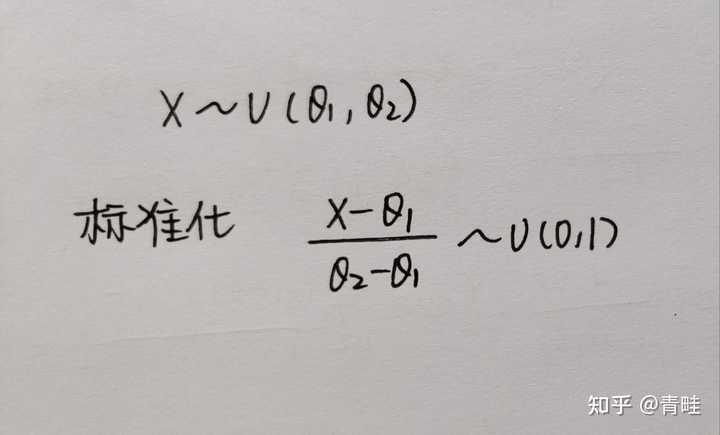 X～U(θ₁,θ₂)
标准化 (X-θ₁)/(θ₂-θ₁) ～U(0,1)
知乎 @青畦